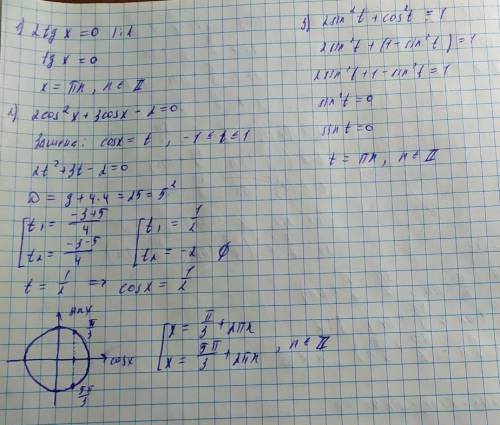 1) 2tg x = 0 |:2
tg x = 0
x = πn, n ∈ Z
2) 2cos²x + 3cosx - 2 = 0
Замена: cosx = t, -1 ≤ t ≤ 1
2t² + 3t - 2 = 0
D = 9 + 4·4 = 25 = 5²
[ t₁ = (-3+5)/4
t₂ = (-3-5)/4
[ t₁ = 1/2
t₂ = -2 ∅
t = 1/2 => cosx = 1/2
sinx
π/3
cosx
5π/3
[ x = π/3 + 2πn
x = 5π/3 + 2πn
, n ∈ Z
3) 2sin²t + cos²t = 1
2sin²t + (1 - sin²t) = 1
2sin²t + 1 - sin²t = 1
sin²t = 0
sint = 0
t = πn, n ∈ Z